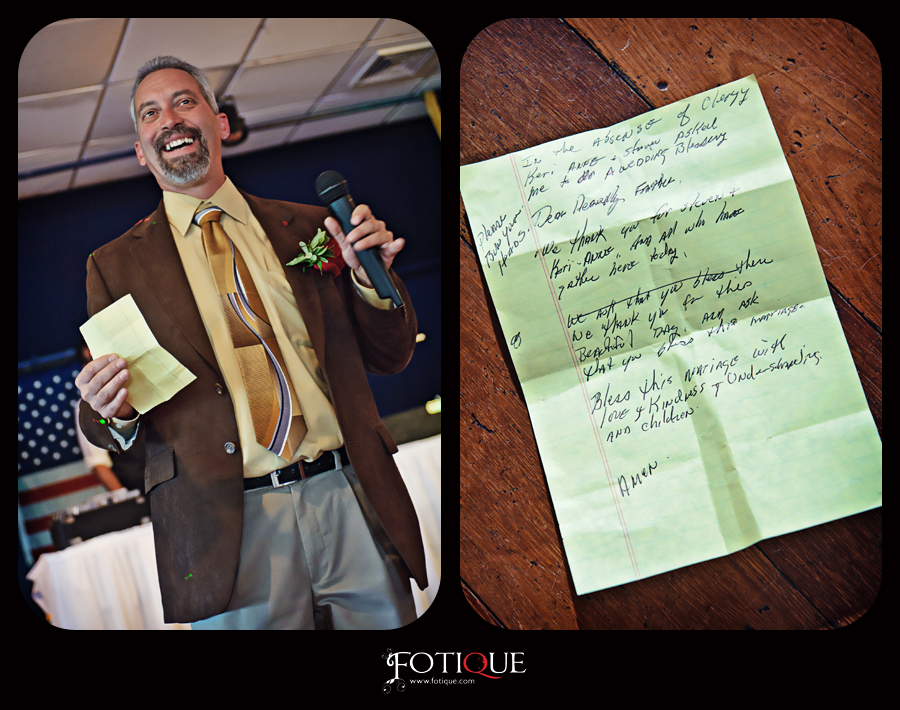 In the Absense of Clergy
Keri-Anne + Steven Asked
me to do A wedding Blessing
Please
Bow your
Heads.
Dear Heavenly Father,
"We thank you for Steven +
Keri-Anne" And all who have
gather here today.
We ask that you bless there
We thank you for this
Beautiful Day. And ask
that you bless this marriage.
Bless this marriage with
love + Kindness + Understanding.
And children.
Amen.
FOTIQUE
www.fotique.com